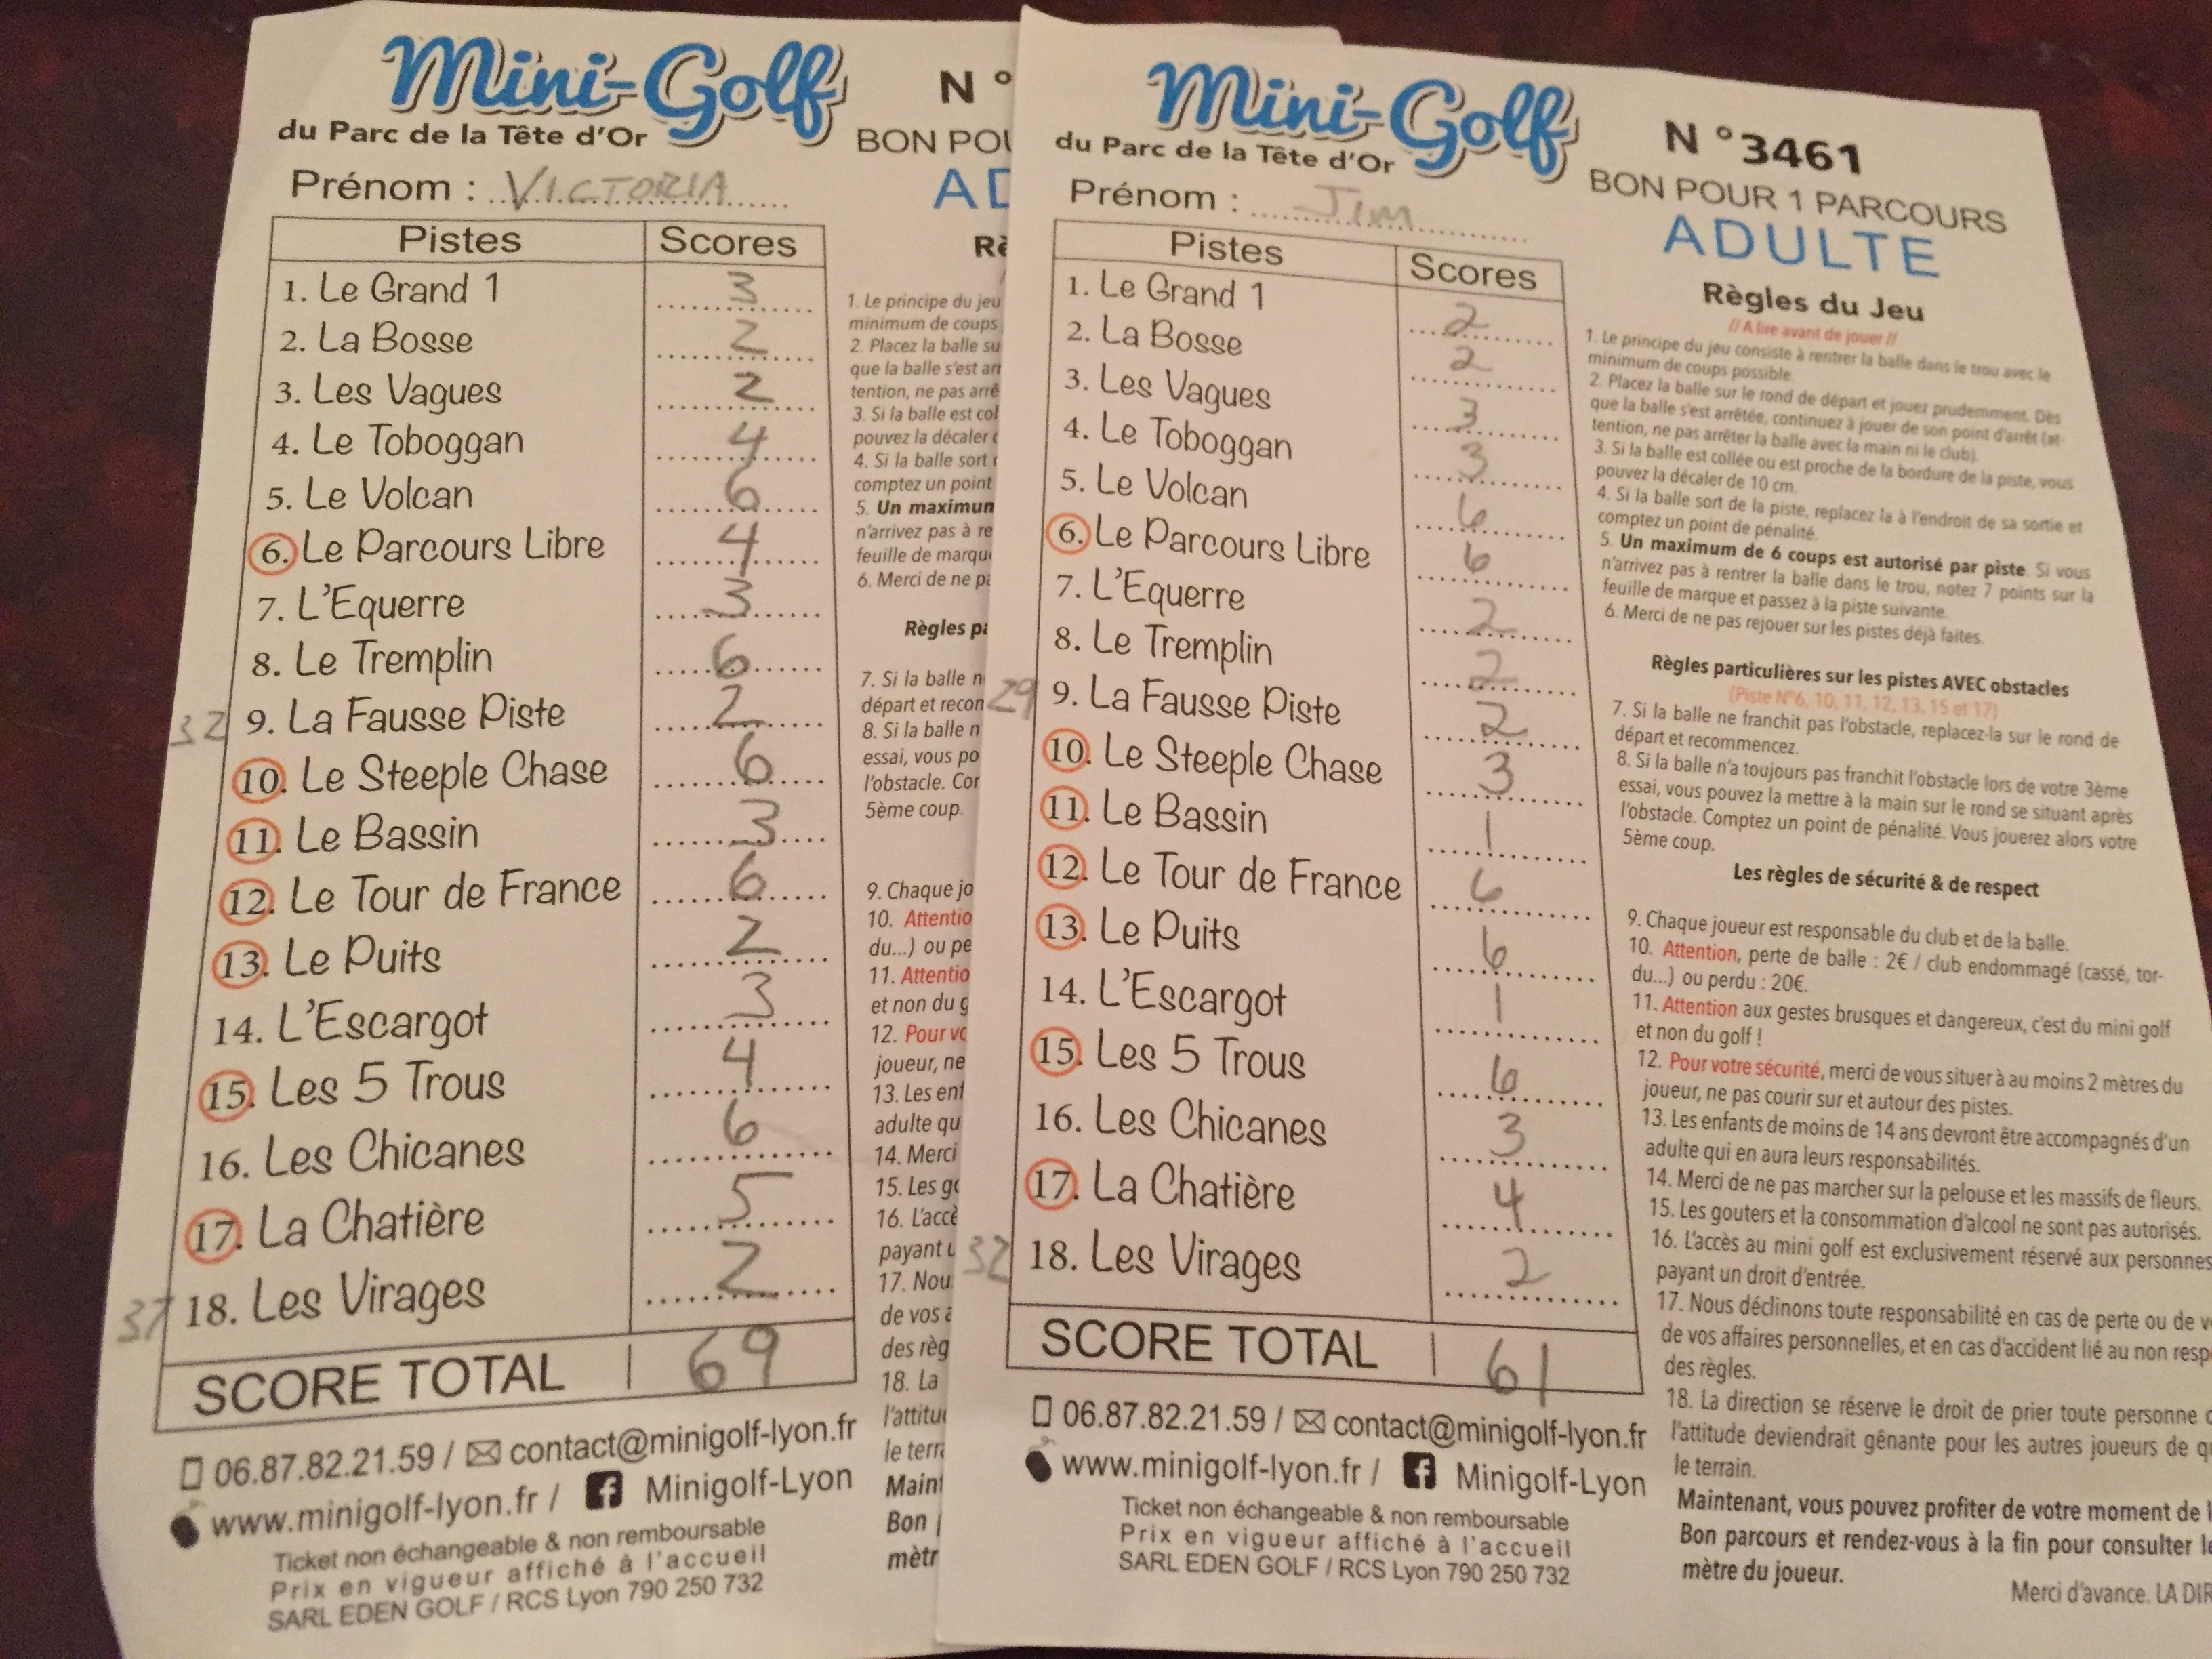 Mini-Golf
du Parc de la Tête d'Or
N °
BON POU
AD
Prénom : VICTORIA
Pistes Scores
1. Le Grand 1 3
2. La Bosse 2
3. Les Vagues 2
4. Le Toboggan 4
5. Le Volcan 6
6. Le Parcours Libre 4
7. L'Equerre 3
8. Le Tremplin 6
32 9. La Fausse Piste 2
10. Le Steeple Chase 6
11. Le Bassin 3
12. Le Tour de France 6
13. Le Puits 2
14. L'Escargot 3
15. Les 5 Trous 4
16. Les Chicanes 6
17. La Chatière 5
37 18. Les Virages 2
SCORE TOTAL 69
06.87.82.21.59 / contact@minigolf-lyon.fr
www.minigolf-lyon.fr / Minigolf-Lyon
Ticket non échangeable & non remboursable
Prix en vigueur affiché à l'accueil
SARL EDEN GOLF / RCS Lyon 790 250 732
Rè
1. Le principe du jeu
minimum de coups
2. Placez la balle su
que la balle s'est arr
tention, ne pas arrê
3. Si la balle est col
pouvez la décaler
4. Si la balle sort
comptez un point
5. Un maximun
n'arrivez pas à re
feuille de marqu
6. Merci de ne pa
Règles pa
7. Si la balle n
départ et recon
8. Si la balle n
essai, vous po
l'obstacle. Cor
5ème coup.
9. Chaque jo
10. Attentio
du...) ou pe
11. Attentio
et non du g
12. Pour vo
joueur, ne
13. Les enf
adulte qu
14. Merci
15. Les go
16. L'accè
payant u
17. Nou
de vos a
des règ
18. La
l'attitu
le terra
Maint
Bon
mètr
Mini-Golf
du Parc de la Tête d'Or
N °3461
BON POUR 1 PARCOURS
ADULTE
Prénom : Jim
Pistes Scores
1. Le Grand 1 2
2. La Bosse 2
3. Les Vagues 3
4. Le Toboggan 3
5. Le Volcan 6
6. Le Parcours Libre 6
7. L'Equerre 2
8. Le Tremplin 2
29 9. La Fausse Piste 2
10. Le Steeple Chase 3
11. Le Bassin 1
12. Le Tour de France 6
13. Le Puits 6
14. L'Escargot 1
15. Les 5 Trous 6
16. Les Chicanes 3
17. La Chatière 4
32 18. Les Virages 2
SCORE TOTAL 61
06.87.82.21.59 / contact@minigolf-lyon.fr
www.minigolf-lyon.fr / Minigolf-Lyon
Ticket non échangeable & non remboursable
Prix en vigueur affiché à l'accueil
SARL EDEN GOLF / RCS Lyon 790 250 732
Règles du Jeu
// A lire avant de jouer //
1. Le principe du jeu consiste à rentrer la balle dans le trou avec le
minimum de coups possible.
2. Placez la balle sur le rond de départ et jouez prudemment. Dès
que la balle s'est arrêtée, continuez à jouer de son point d'arrêt (at-
tention, ne pas arrêter la balle avec la main ni le club).
3. Si la balle est collée ou est proche de la bordure de la piste, vous
pouvez la décaler de 10 cm.
4. Si la balle sort de la piste, replacez la à l'endroit de sa sortie et
comptez un point de pénalité.
5. Un maximum de 6 coups est autorisé par piste. Si vous
n'arrivez pas à rentrer la balle dans le trou, notez 7 points sur la
feuille de marque et passez à la piste suivante.
6. Merci de ne pas rejouer sur les pistes déjà faites.
Règles particulières sur les pistes AVEC obstacles
(Piste N°6, 10, 11, 12, 13, 15 et 17)
7. Si la balle ne franchit pas l'obstacle, replacez-la sur le rond de
départ et recommencez.
8. Si la balle n'a toujours pas franchit l'obstacle lors de votre 3ème
essai, vous pouvez la mettre à la main sur le rond se situant après
l'obstacle. Comptez un point de pénalité. Vous jouerez alors votre
5ème coup.
Les règles de sécurité & de respect
9. Chaque joueur est responsable du club et de la balle.
10. Attention, perte de balle : 2€ / club endommagé (cassé, tor-
du...) ou perdu : 20€.
11. Attention aux gestes brusques et dangereux, c'est du mini golf
et non du golf !
12. Pour votre sécurité, merci de vous situer à au moins 2 mètres du
joueur, ne pas courir sur et autour des pistes.
13. Les enfants de moins de 14 ans devront être accompagnés d'un
adulte qui en aura leurs responsabilités.
14. Merci de ne pas marcher sur la pelouse et les massifs de fleurs.
15. Les gouters et la consommation d'alcool ne sont pas autorisés.
16. L'accès au mini golf est exclusivement réservé aux personnes
payant un droit d'entrée.
17. Nous déclinons toute responsabilité en cas de perte ou de v
de vos affaires personnelles, et en cas d'accident lié au non resp
des règles.
18. La direction se réserve le droit de prier toute personne
l'attitude deviendrait gênante pour les autres joueurs de q
le terrain.
Maintenant, vous pouvez profiter de votre moment de
Bon parcours et rendez-vous à la fin pour consulter le
mètre du joueur.
Merci d'avance. LA DIR